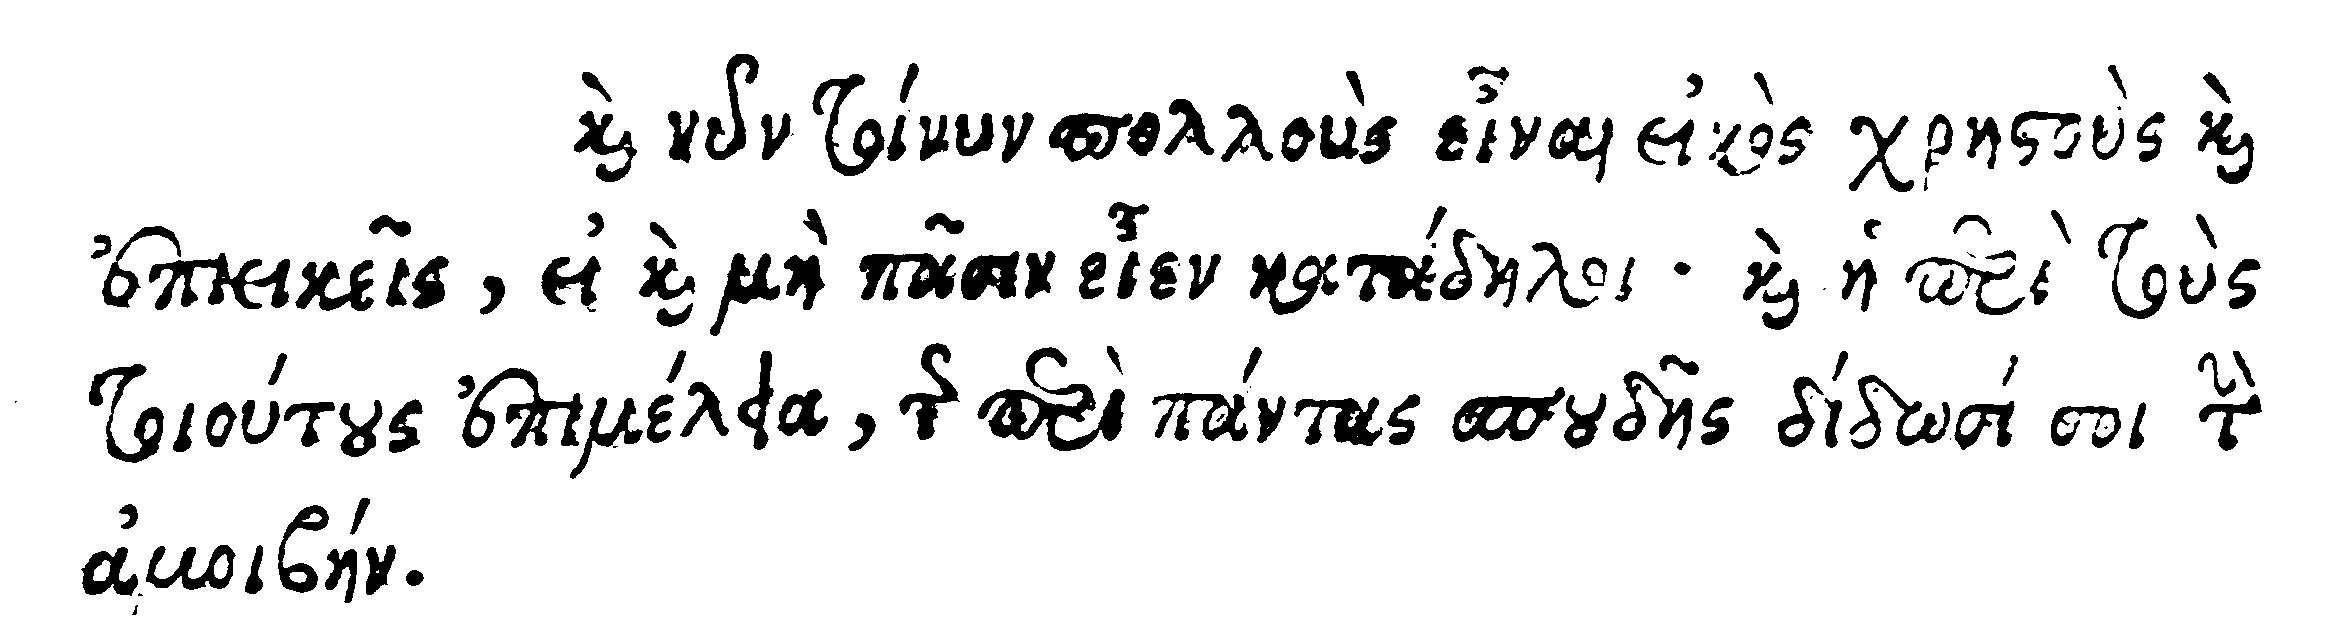 καὶ νῦν τοίνυν πολλοὺς εἶναι εἰκὸς χρηστοὺς καὶ
ἐπιεικεῖς, εἰ καὶ μὴ πᾶσιν εἶεν κατάδηλοι· καὶ ἡ περὶ τοὺς
τοιούτους ἐπιμέλεια, τῆς περὶ πάντας σπουδῆς δίδωσί σοι τὴν
ἀμοιβήν.